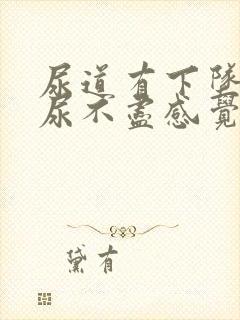 尿道有下墜
尿不盡感覺
黛有